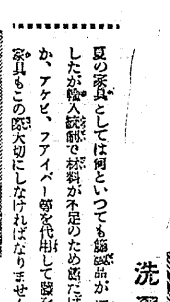 洗
夏の家具としては何といつても籐製品が
したが輸入統制で材料が不足のため籐だけ
か、アケビ、フアイバー等を代用して
家具もこの際大切にしなければなりません